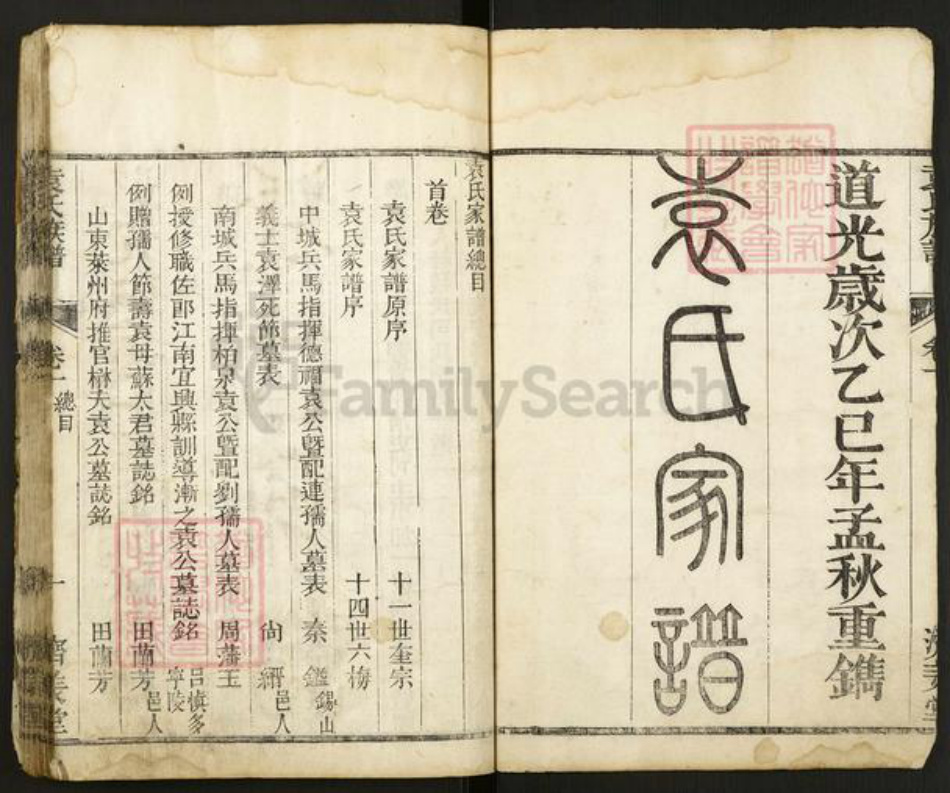 道光歲次乙巳年孟秋重鐫
袁氏家譜
袁氏家譜總目
首卷
袁氏家譜原序 十一世奎宗
袁氏家譜序 十四世六梅
中城兵馬指揮德福袁公暨配連孺人墓表 秦鑑 錫山
義士袁澤死節墓表 尙絅 邑人
南城兵馬指揮柏泉袁公暨配劉孺人墓表 周藩王
例授修職佐郎江南宜興縣訓導漸之袁公墓誌銘 呂禎多 寧陵
例贈孺人節壽袁母蘇太君墓誌銘 田蘭芳 邑人
山東萊州府推官楙大袁公墓誌銘 田蘭芳
袁氏族譜
卷一
總目
一
FamilySearch